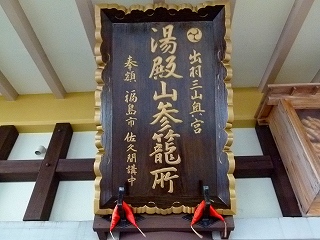 出羽三山奥宮
湯殿山参籠所
奉額 福島市 佐久間講中